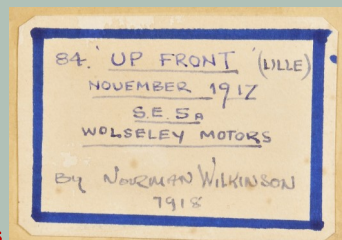 84. 'UP FRONT' (LILLE)
NOVEMBER 1917
S.E. 5A
WOLSELEY MOTORS
By NORMAN WILKINSON
1918